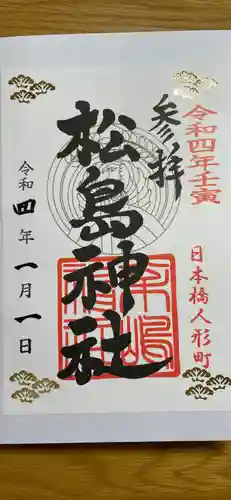 令和四年壬寅
日本橋人形町
奉拝
松島神社
令和四年一月一日